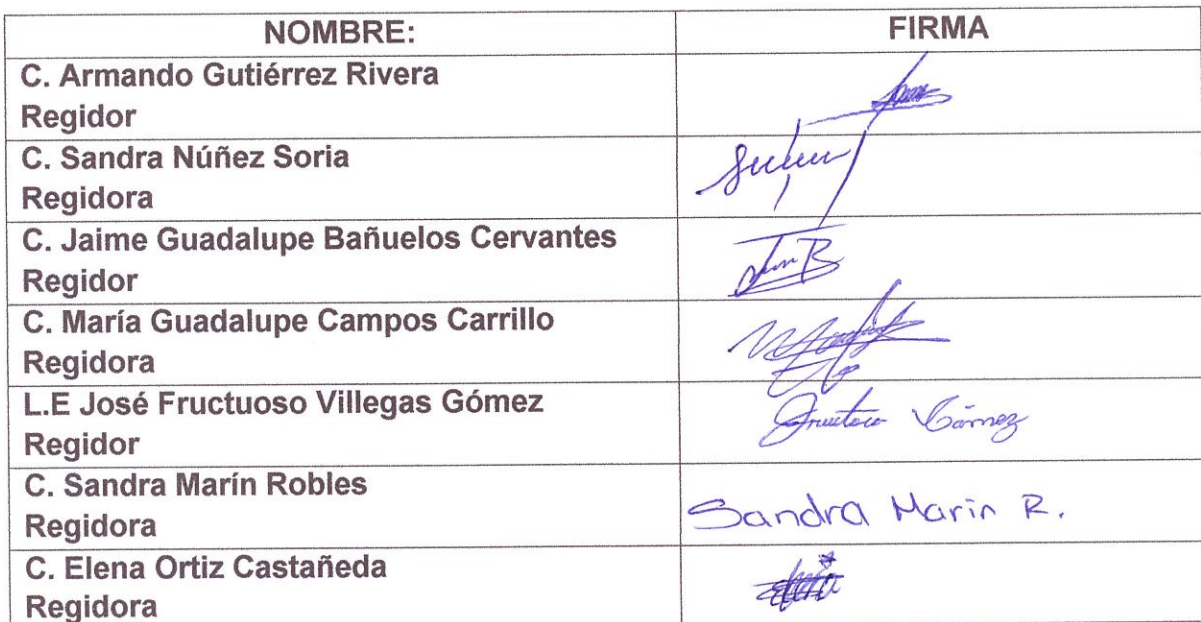 NOMBRE: FIRMA
C. Armando Gutiérrez Rivera
Regidor
C. Sandra Núñez Soria
Regidora
C. Jaime Guadalupe Bañuelos Cervantes
Regidor
C. María Guadalupe Campos Carrillo
Regidora
L.E José Fructuoso Villegas Gómez
Regidor
Gómez
C. Sandra Marín Robles
Regidora
Sandra Marin R.
C. Elena Ortiz Castañeda
Regidora